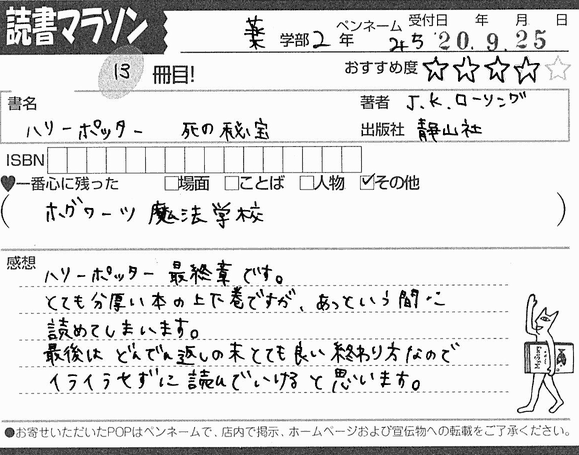 読書マラソン
薬 学部 2 年 ペンネーム みち 受付日 年 月 日
'20.9.25
13 冊目! おすすめ度 ☆☆☆☆☆
書名 著者 J.K.ローリング
ハリーポッター 死の秘宝 出版社 静山社
ISBN
♥一番心に残った □場面 □ことば □人物 ☑その他
( ホグワーツ 魔法学校 )
感想
ハリーポッター 最終章です。
とても分厚い本の上下巻ですが、あっという間に
読めてしまいます。
最後は どんでん返しの末とても良い終わり方なので
イライラせずに 読んでいけると思います。
●お寄せいただいたPOPはペンネームで、店内で掲示、ホームページおよび宣伝物への転載をご了承ください。